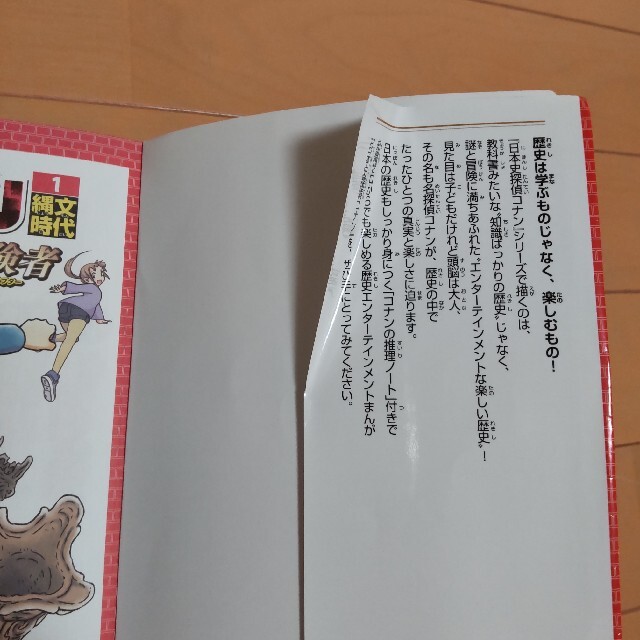 歴史は学ぶものじゃなく、楽しむもの！
「日本史探偵コナン」シリーズで描くのは、
教科書みたいな“知識ばっかりの歴史”じゃなく、
謎と冒険に満ちあふれた“エンターテインメントな楽しい歴史”！
見た目は子どもだけれど頭脳は大人、
その名も名探偵コナンが、歴史の中で
たったひとつの真実と楽しさに迫ります。
日本の歴史もしっかり身につく「コナンの推理ノート」付きで
でも楽しめる歴史エンターテインメントまんが
手にとってみてください。
1
縄文
時代
険者